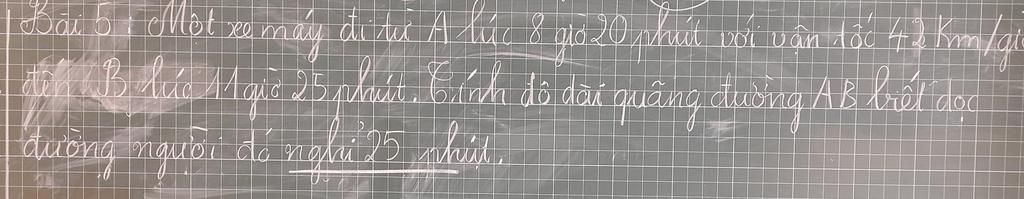 Bài 5: Một xe máy đi từ A lúc 8 giờ 20 phút với vận tốc 42 Km/giờ
đến B lúc 11 giờ 25 phút. Tính độ dài quãng đường AB biết dọc
đường người đó nghỉ 25 phút.